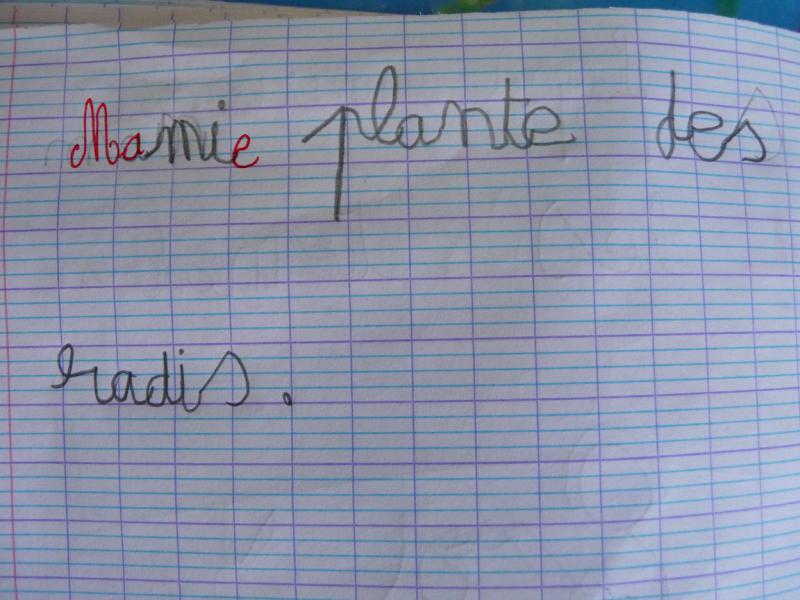 Mamie plante des
radis.